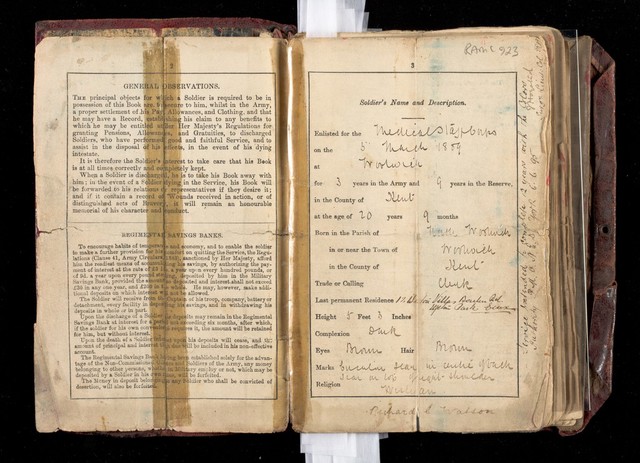 2
GENERAL OBSERVATIONS.
THE principal objects for which a Soldier is required to be in
possession of this Book are to secure to him, whilst in the Army,
a proper settlement of his Pay, Allowances, and Clothing, and that
he may have a Record, establishing his claim to any benefits to
which he may be entitled under Her Majesty's Regulations for
granting Pensions, Allowances, and Gratuities, to discharged
Soldiers, who have performed good and faithful Service, and to
assist in the disposal of his effects, in the event of his dying
intestate.
It is therefore the Soldier's interest to take care that his Book
is at all times correctly and completely kept.
When a Soldier is discharged, he is to take his Book away with
him; in the event of a Soldier dying in the Service, his Book will
be forwarded to his relatives or representatives if they desire it;
and if it contain a record of Wounds received in action, or of
distinguished acts of Bravery, it will remain an honourable
memorial of his character and conduct.
REGIMENTAL SAVINGS BANKS.
To encourage habits of temperance and economy, and to enable the soldier
to make a further provision for his comfort on quitting the Service, the Regu-
lations (Clause 41, Army Circulars sanctioned by Her Majesty, afford
him the readiest means of accumulating his savings, by authorising the pay-
ment of interest at the rate of a year upon every hundred pounds, or
of a year upon every pound deposited by him in the Military
Savings Bank; provided the deposited and interest shall not exceed
in any one year, and in the whole. He may, however, make addi-
tional deposits on which interest will not be allowed.
The Soldier will receive from the Captain of his troop, company, battery or
detachment, every facility in depositing his savings, and in withdrawing his
deposits in whole or in part.
Upon the discharge of a Soldier his deposits may remain in the Regimental
Savings Bank at interest for a period not exceeding six months, after which,
if the soldier for his own convenience require it, the amount will be retained
for him, but without interest.
Upon the death of a Soldier interest upon his deposits will cease, and the
amount of principal and interest due will be included in his non-effective
account.
The Regimental Savings Bank being established solely for the advan-
tage of the Non-Commissioned Officers and Soldiers of the Army, any money
belonging to other persons, whether in Military employ or not, which may be
deposited by a Soldier in his own name, will be forfeited.
The money in deposit belonging to any Soldier who shall be convicted of
desertion, will also be forfeited.
923
3
Soldier's Name and Description.
Enlisted for the Medical Staff Corps
on the 5 March 1889
at Woolwich
for 3 years in the Army and 9 years in the Reserve,
in the County of Kent
at the age of 20 years 9 months
Born in the Parish of Woolwich
in or near the Town of Woolwich
in the County of Kent
Trade or Calling Clerk
Last permanent Residence
Height 5 Feet 8 Inches
Complexion Dark
Eyes Brown Hair Brown
Marks
Religion Wesleyan
Richard S Watson